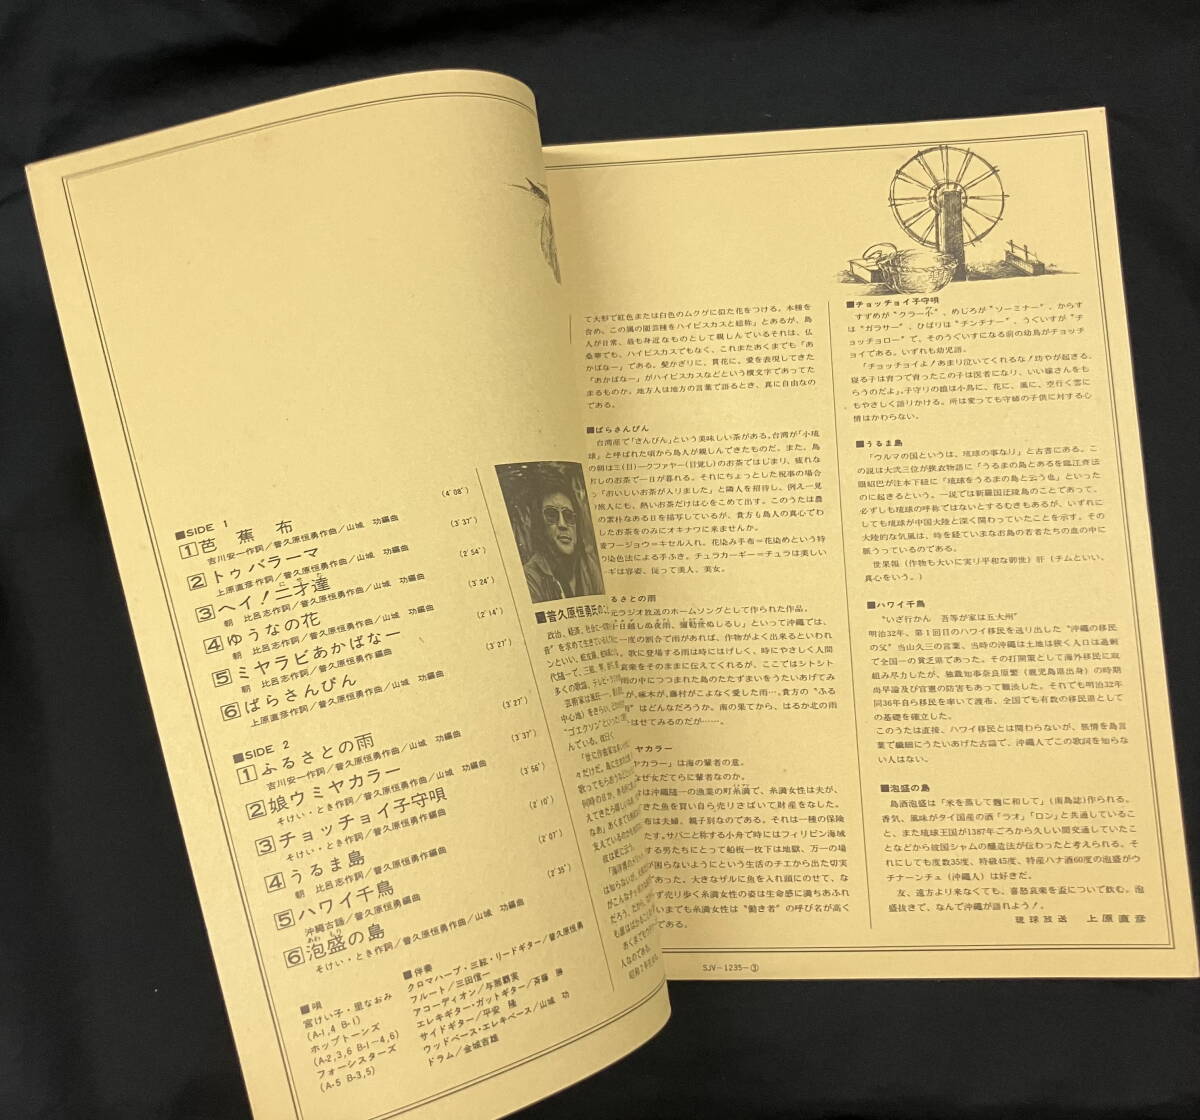 ■SIDE 1
1 芭蕉布 (4′08″)
吉川安一作詞/普久原恒勇作曲/山城 功編曲
2 トゥバラーマ (3′37″)
上原直彦作詞/普久原恒勇作曲/山城 功編曲
3 ヘイ!二才達 (2′54″)
朝 比呂志作詞/普久原恒勇作曲/山城 功編曲
4 ゆうなの花 (3′24″)
朝 比呂志作詞/普久原恒勇作曲/山城 功編曲
5 ミヤラビあかばなー (2′14″)
朝 比呂志作詞/普久原恒勇作曲/山城 功編曲
6 ばらさんぴん (3′27″)
上原直彦作詞/普久原恒勇作曲/山城 功編曲
■SIDE 2
1 ふるさとの雨 (3′27″)
吉川安一作詞/普久原恒勇作曲/山城 功編曲
2 娘ウミヤカラー (3′37″)
そけい・とき作詞/普久原恒勇作曲/山城 功編曲
3 チョッチョイ子守唄 (3′56″)
そけい・とき作詞/普久原恒勇作曲/山城 功編曲
4 うるま島 (2′10″)
朝 比呂志作詞/普久原恒勇作曲/山城 功編曲
5 ハワイ千鳥 (2′07″)
沖縄古謡/普久原恒勇編曲
6 泡盛の島 (2′35″)
あわ もり
そけい・とき作詞/普久原恒勇作曲/山城 功編曲
■唄
宮けい子・里なおみ
(A-1,4 B-1)
ホップトーンズ
(A-2,3,6 B-1~4,6)
フォーシスターズ
(A-5 B-3,5)
■伴奏
クロマハープ・三絃・リードギター/普久原恒勇
フルート/三田信一
アコーディオン/与那覇実
エレキギター・ガットギター/斉藤 勝
サイドギター/平安 隆
ウッドベース・エレキベース/山城 功
ドラム/金城吉雄
■普久原恒勇氏のこ
て大形で紅色または白色のムクゲに似た花をつける。本種を
含め、この属の園芸種をハイビスカスと総称」とあるが、島
人が日常、最も身近なものとして親しんでいるそれは、仏
桑華でも、ハイビスカスでもなく、これまたあくまでも「あ
かばなー」である。髪かざりに、貫花に、愛を表現してきた
「あかばなー」がハイビスカスなどという横文字であってた
まるものか。地方人は地方の言葉で語るとき、真に自由なの
である。
■ばらさんぴん
台湾産で「さんぴん」という美味しい茶がある。台湾が「小琉
球」と呼ばれた頃から島人が親しんできたものだ。また、島
の朝は三(目)ークファヤー(目覚し)のお茶ではじまり、疲れな
おしのお茶で一日が暮れる。それにちょっとした祝事の場合
「おいしいお茶が入りました」と隣人を招待し、例え一見
旅人にも、熱いお茶だけは心をこめて出す。このうたは農
の素朴なある日を描写しているが、貴方も島人の真心でわ
したお茶をのみにオキナワに来ませんか。
フージョウ=キセル入れ。花染み手布=花染めという特
染色法による手ふき。チュラカーギー=チュラは美しい
ギは容姿、従って美人、美女。
るさとの雨
元ラジオ放送のホームソングとして作られた作品。
十日越しぬ夜雨、彌勒世ぬしるし」といって沖縄では、
に一度の割合で雨があれば、作物がよく出来るといわれ
歌に登場する雨は時にはげしく、時にやさしく人間
哀楽をそのままに伝えてくれるが、ここではシトシト
雨の中につつまれた島のたたずまいをうたいあげてみ
が、啄木が、藤村がこよなく愛した雨…。貴方の“ふる
雨”はどんなだろうか。南の果てから、はるか北の雨
はせてみるのだが……。
ヤカラー
ヤカラー」は海の輩者の意。
なぜ女だてらに輩者なのか。
は沖縄随一の漁業の町糸満で、糸満女性は夫が、
きた魚を買い自ら売りさばいて財産をなした。
布は夫婦、親子別なのである。それは一種の保険
たす。サバニと称する小舟で時にはフィリピン海域
する男たちにとって船板一枚下は地獄、万一の場
困らないようにという生活のチエから出た切実
あった。大きなザルに魚を入れ頭にのせて、な
ず売り歩く糸満女性の姿は生命感に満ちあふれ
いまでも糸満女性は“働き者”の呼び名が高く
である。
■チョッチョイ子守唄
すずめが“クラー小”、めじろが“ソーミナー”、からす
は“ガラサー”、ひばりは“チンチナー”、うぐいすが“チ
ョッチョロー”で、そのうぐいすになる前の幼鳥がチョッチ
ョイである。いずれも幼児語。
「チョッチョイよ!あまり泣いてくれるな!坊やが起きる。
寝る子は育つで育ったこの子は医者になり、いい嫁さんをも
らうのだよ」。子守りの娘は小鳥に、花に、風に、空行く雲に
もやさしく語りかける。所は変っても守姉の子供に対する心
情はかわらない。
■うるま島
「ウルマの国というは、琉球の事なり」と古書にある。こ
の説は大弐三位が挟衣物語に「うるまの島とあるを臨江斉法
眼昭巴が注本下紐に「琉球をうるまの島と云う也」といった
のに起きるという。一説では新羅国迂陵島のことであって、
必ずしも琉球の呼称ではないとするむきもあるが、いずれに
しても琉球が中国大陸と深く関わっていたことを示す。その
大陸的な気風は、時を経ていまなお島の若者たちの血の中に
脈うっているのである。
世果報(作物も大いに実り平和な御世)肝(チムといい、
真心をいう。)
■ハワイ千鳥
“いざ行かん 吾等が家は五大州”
明治32年、第1回目のハワイ移民を送り出した“沖縄の移民
の父”当山久三の言葉、当時の沖縄は土地は狭く人口は過剰
で全国一の貧乏県であった。その打開策として海外移民に取
組み尽力したが、独裁知事奈良原繁(鹿児島県出身)の時期
尚早論及び官憲の妨害もあって難渋した。それでも明治32年
同36年自ら移民を率いて渡布、全国でも有数の移民県として
の基礎を確立した。
このうたは直接、ハワイ移民とは関わらないが、無情を島言
葉で繊細にうたいあげた古謡で、沖縄人でこの歌詞を知らな
い人はない。
■泡盛の島
島酒泡盛は「米を蒸して麹に和して」(南島誌)作られる。
香気、風味がタイ国産の酒「ラオ」「ロン」と共通しているこ
と、また琉球王国が1387年ごろから久しい間交通していたこ
となどから彼国シャムの醸造法が伝わったと考えられる。そ
れにしても度数35度、特級45度、特産ハナ酒60度の泡盛がウ
チナーンチュ(沖縄人)は好きだ。
友、遠方より来なくても、喜怒哀楽を盃について飲む。泡
盛抜きで、なんで沖縄が語れよう!
琉球放送 上原直彦
SJV-1235-③